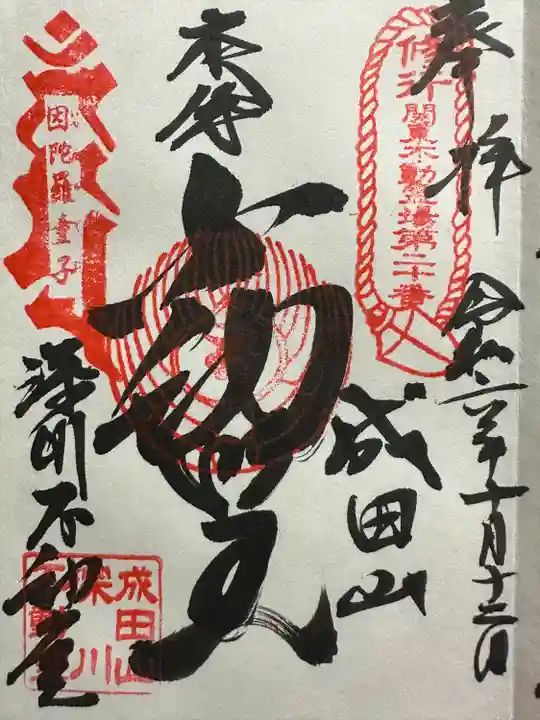 奉拝
令和二年十月十二日
修行
関東不動霊場第二十番
成田山
本尊
不動明王
因陀羅童子
深川不動堂
成田山
深川
不動堂